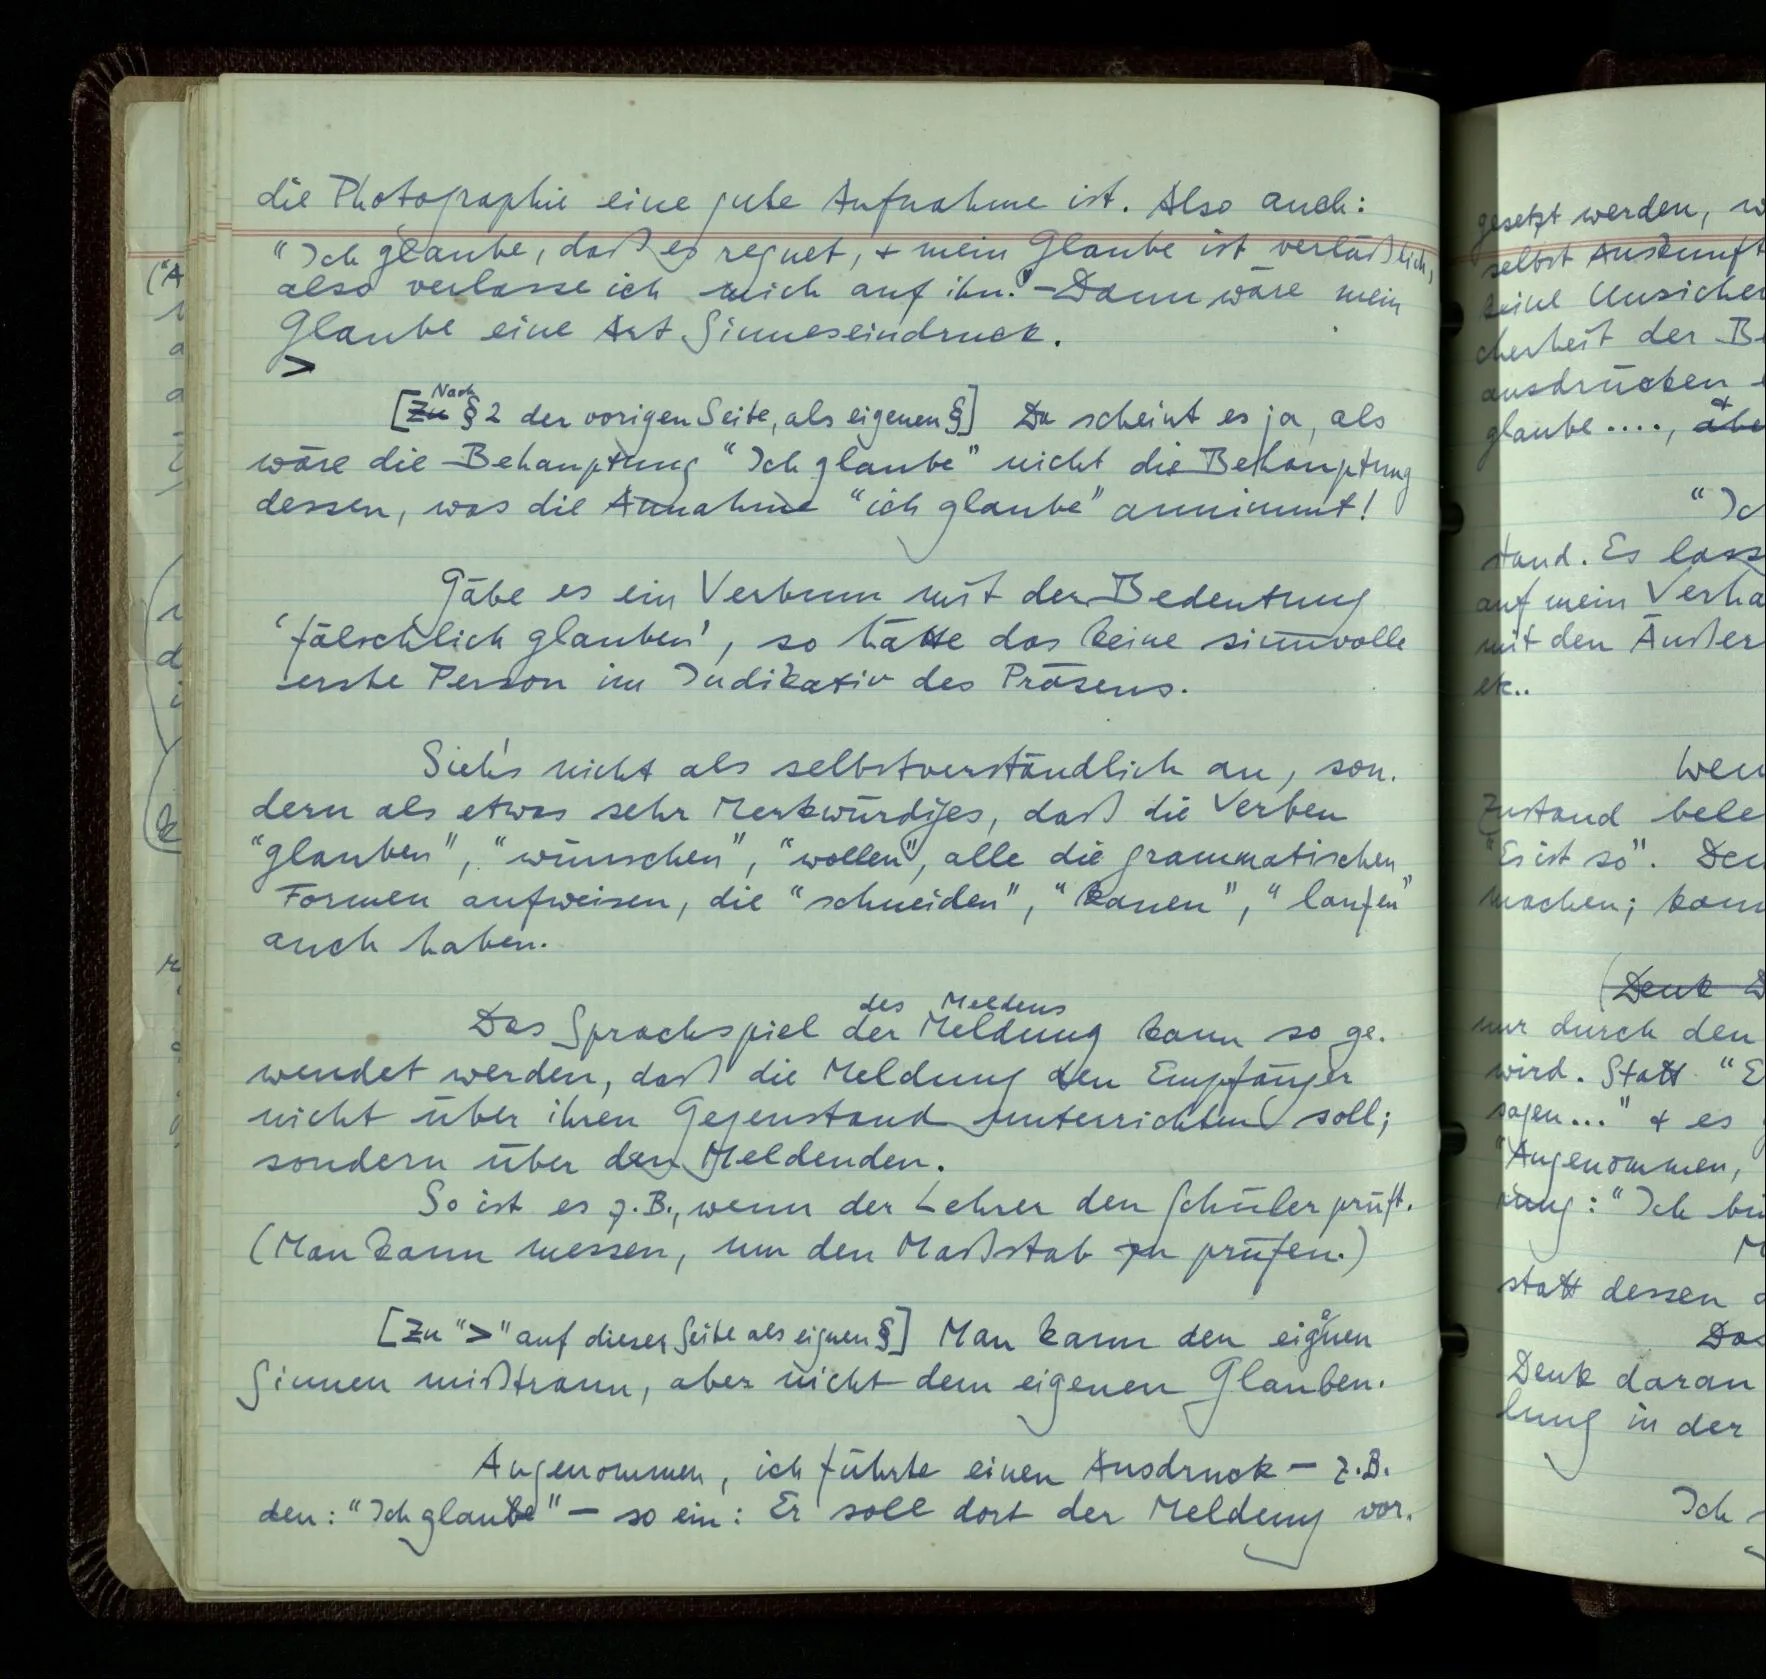 die Photographie eine gute Aufnahme ist. Also auch:
"Ich glaube, daß es regnet, + mein Glaube ist verläßlich,
also verlasse ich mich auf ihn." – Dann wäre mein
Glaube eine Art Sinneseindruck.
>
Nach
[Zu § 2 der vorigen Seite, als eigenen §] Da scheint es ja, als
wäre die Behauptung "Ich glaube" nicht die Behauptung
dessen, was die Annahme "ich glaube" annimmt!
Gäbe es ein Verbum mit der Bedeutung
'fälschlich glauben', so hätte das keine sinnvolle
erste Person im Indikativ des Präsens.
Sieh's nicht als selbstverständlich an, son-
dern als etwas sehr Merkwürdiges, daß die Verben
"glauben", "wünschen", "wollen", alle die grammatischen
Formen aufweisen, die "schneiden", "kauen", "laufen"
auch haben.
des Meldens
Das Sprachspiel der Meldung kann so ge-
wendet werden, daß die Meldung den Empfänger
nicht über ihren Gegenstand unterrichten soll;
sondern über den Meldenden.
So ist es z.B., wenn der Lehrer den Schüler prüft.
(Man kann messen, um den Maßstab zu prüfen.)
[Zu ">" auf dieser Seite als eignen §] Man kann den eigenen
Sinnen mißtraun, aber nicht dem eigenen Glauben.
Angenommen, ich führte einen Ausdruck – z.B.
den: "Ich glaube" – so ein: Er soll dort der Meldung vor-
gesetzt werden, w
selbst Auskunft
keine Unsicher
cherheit der Be
ausdrücken
glaube ...., + abe
"Ic
stand. Es lass
auf mein Verha
mit den Äußer
etc..
Wen
Zustand bele
"Es ist so". Den
machen; kann
(Denk D
nur durch den
wird. Statt "E
sagen..." + es
"Angenommen,
rung: "Ich bi
M
statt dessen
Das
Denk daran
lung in der
Ich